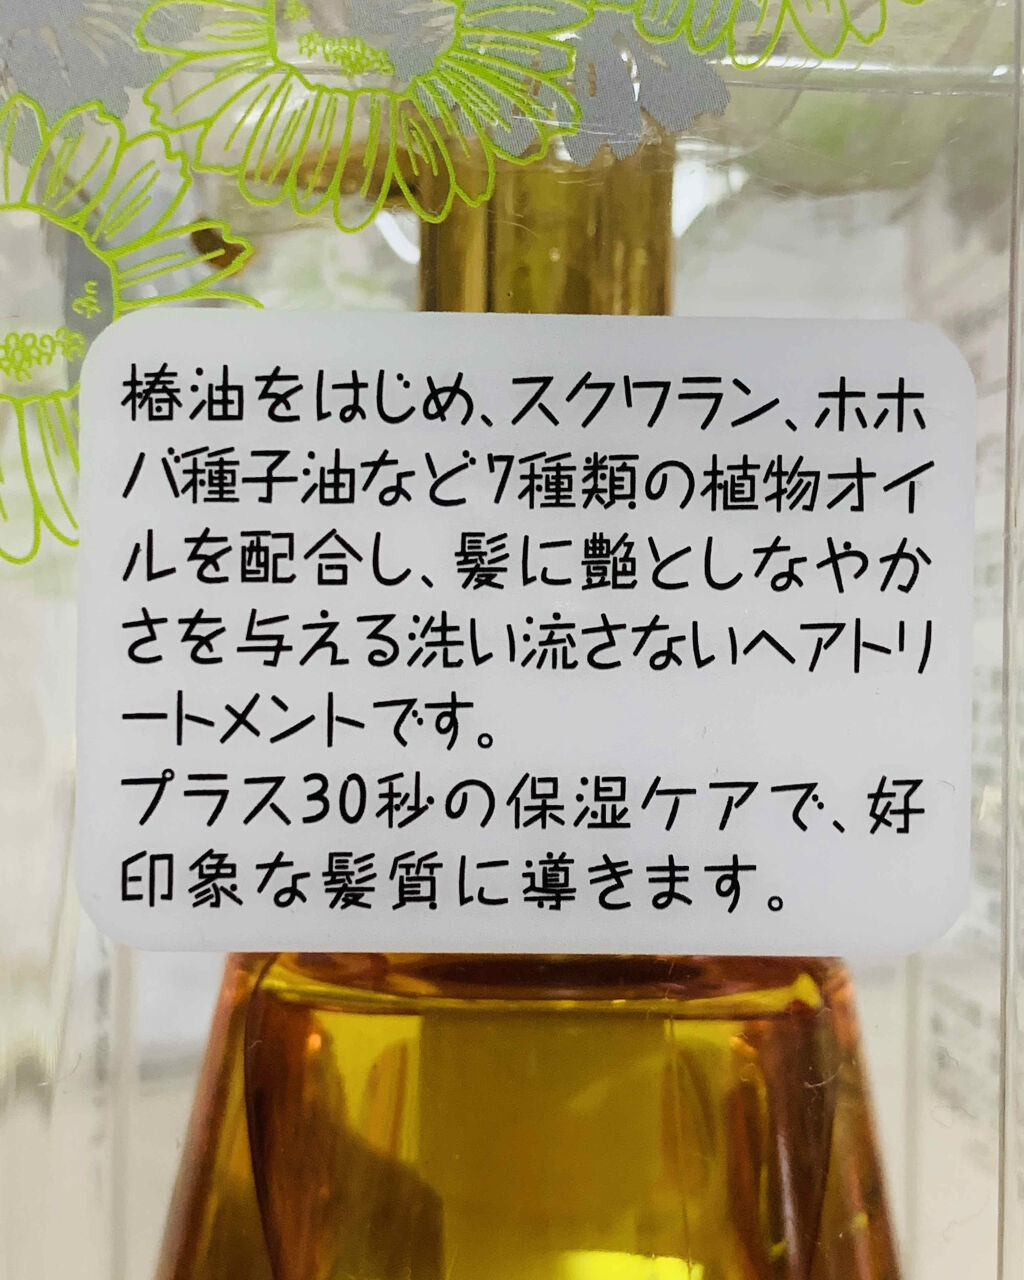 椿油をはじめ、スクワラン、ホホ
バ種子油など7種類の植物オイ
ルを配合し、髪に艶としなやか
さを与える洗い流さないヘアトリ
ートメントです。
プラス30秒の保湿ケアで、好
印象な髪質に導きます。